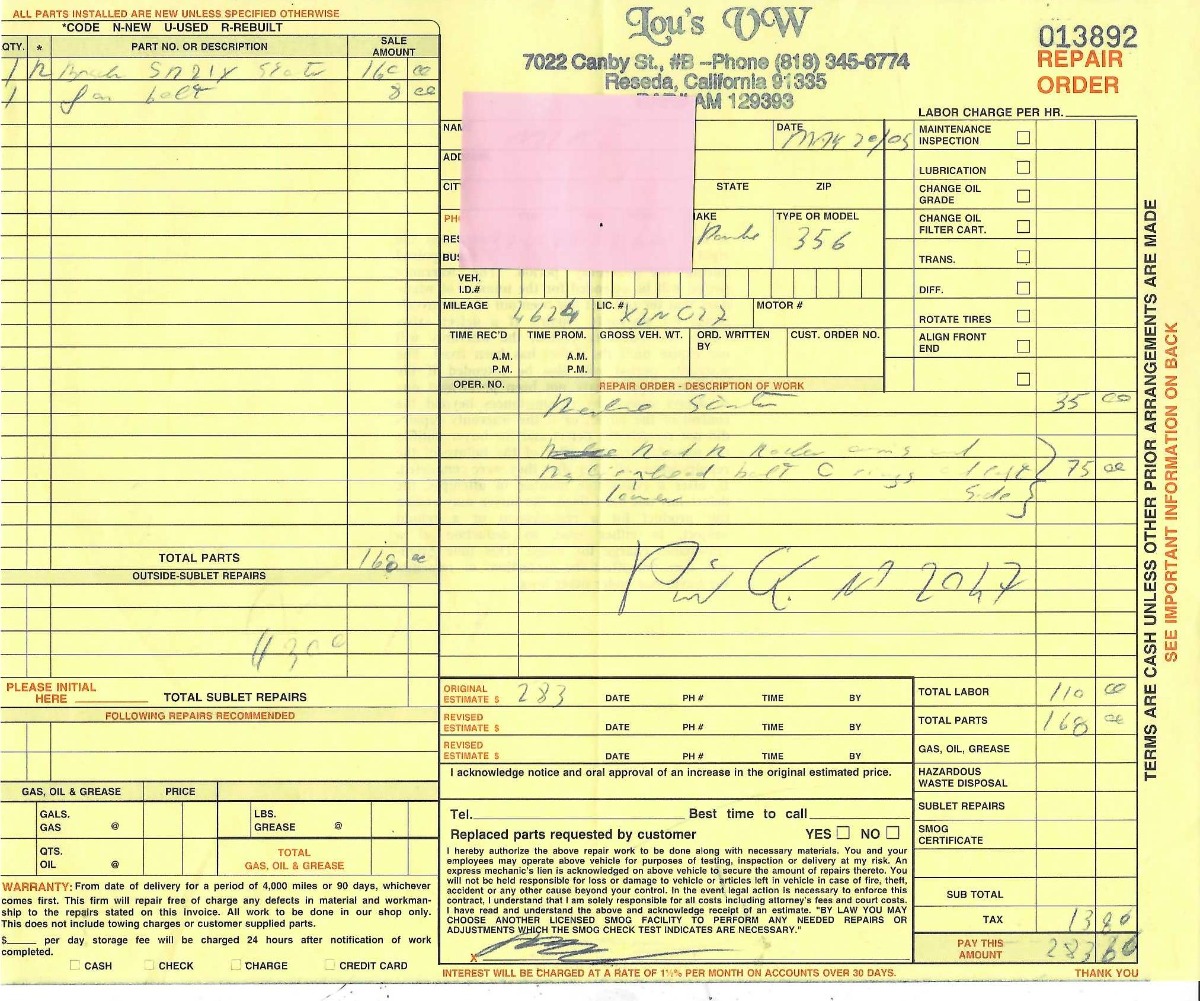 ALL PARTS INSTALLED ARE NEW UNLESS SPECIFIED OTHERWISE
*CODE N-NEW U-USED R-REBUILT
QTY. * PART NO. OR DESCRIPTION SALE AMOUNT
1 N SR21X 160 00
1 fan belt 8 00
TOTAL PARTS 168 00
OUTSIDE-SUBLET REPAIRS
PLEASE INITIAL HERE TOTAL SUBLET REPAIRS
FOLLOWING REPAIRS RECOMMENDED
GAS, OIL & GREASE PRICE
GALS. GAS @ LBS. GREASE @
QTS. OIL @ TOTAL GAS, OIL & GREASE
WARRANTY: From date of delivery for a period of 4,000 miles or 90 days, whichever
comes first. This firm will repair free of charge any defects in material and workman-
ship to the repairs stated on this invoice. All work to be done in our shop only.
This does not include towing charges or customer supplied parts.
$ per day storage fee will be charged 24 hours after notification of work
completed.
CASH CHECK CHARGE CREDIT CARD
Lou's VW
7022 Canby St., #B --Phone (818) 345-6774
Reseda, California 91335
AM 129393
013892
REPAIR
ORDER
LABOR CHARGE PER HR.
NAM DATE MAY 20/05
ADD
CIT STATE ZIP
PH AKE TYPE OR MODEL
RES 356
BUS
VEH. I.D.#
MILEAGE 4624 LIC. # MOTOR #
TIME REC'D TIME PROM. GROSS VEH. WT. ORD. WRITTEN BY CUST. ORDER NO.
A.M. A.M.
P.M. P.M.
OPER. NO. REPAIR ORDER - DESCRIPTION OF WORK
MAINTENANCE INSPECTION
LUBRICATION
CHANGE OIL GRADE
CHANGE OIL FILTER CART.
TRANS.
DIFF.
ROTATE TIRES
ALIGN FRONT END
35 00
R and R Rocker arms and
head bolt O rings 75 00
lower side
2047
ORIGINAL ESTIMATE $ 283 DATE PH # TIME BY
REVISED ESTIMATE $ DATE PH # TIME BY
REVISED ESTIMATE $ DATE PH # TIME BY
I acknowledge notice and oral approval of an increase in the original estimated price.
Tel. Best time to call
Replaced parts requested by customer YES NO
I hereby authorize the above repair work to be done along with necessary materials. You and your
employees may operate above vehicle for purposes of testing, inspection or delivery at my risk. An
express mechanic's lien is acknowledged on above vehicle to secure the amount of repairs thereto. You
will not be held responsible for loss or damage to vehicle or articles left in vehicle in case of fire, theft,
accident or any other cause beyond your control. In the event legal action is necessary to enforce this
contract, I understand that I am solely responsible for all costs including attorney's fees and court costs.
I have read and understand the above and acknowledge receipt of an estimate. "BY LAW YOU MAY
CHOOSE ANOTHER LICENSED SMOG FACILITY TO PERFORM ANY NEEDED REPAIRS OR
ADJUSTMENTS WHICH THE SMOG CHECK TEST INDICATES ARE NECESSARY."
X
INTEREST WILL BE CHARGED AT A RATE OF 1½% PER MONTH ON ACCOUNTS OVER 30 DAYS.
TOTAL LABOR 110 00
TOTAL PARTS 168 00
GAS, OIL, GREASE
HAZARDOUS WASTE DISPOSAL
SUBLET REPAIRS
SMOG CERTIFICATE
SUB TOTAL
TAX
PAY THIS AMOUNT
THANK YOU
TERMS ARE CASH UNLESS OTHER PRIOR ARRANGEMENTS ARE MADE
SEE IMPORTANT INFORMATION ON BACK